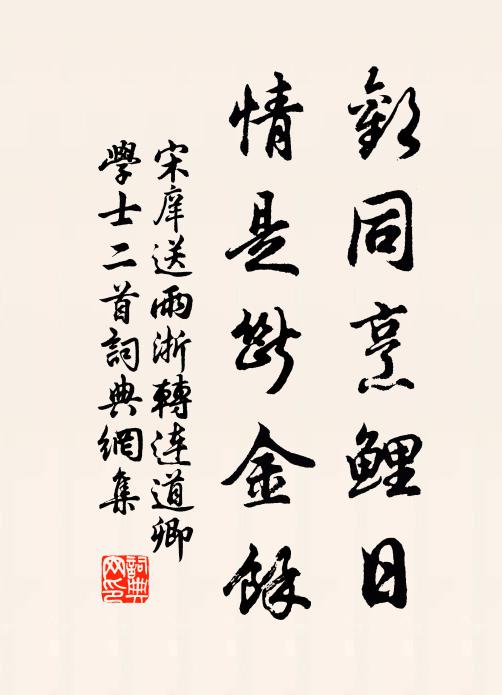 歡同烹鯉日
情是斷金餘
宋庠送兩浙轉運道卿
學士二首詞典網集
詞典
网印